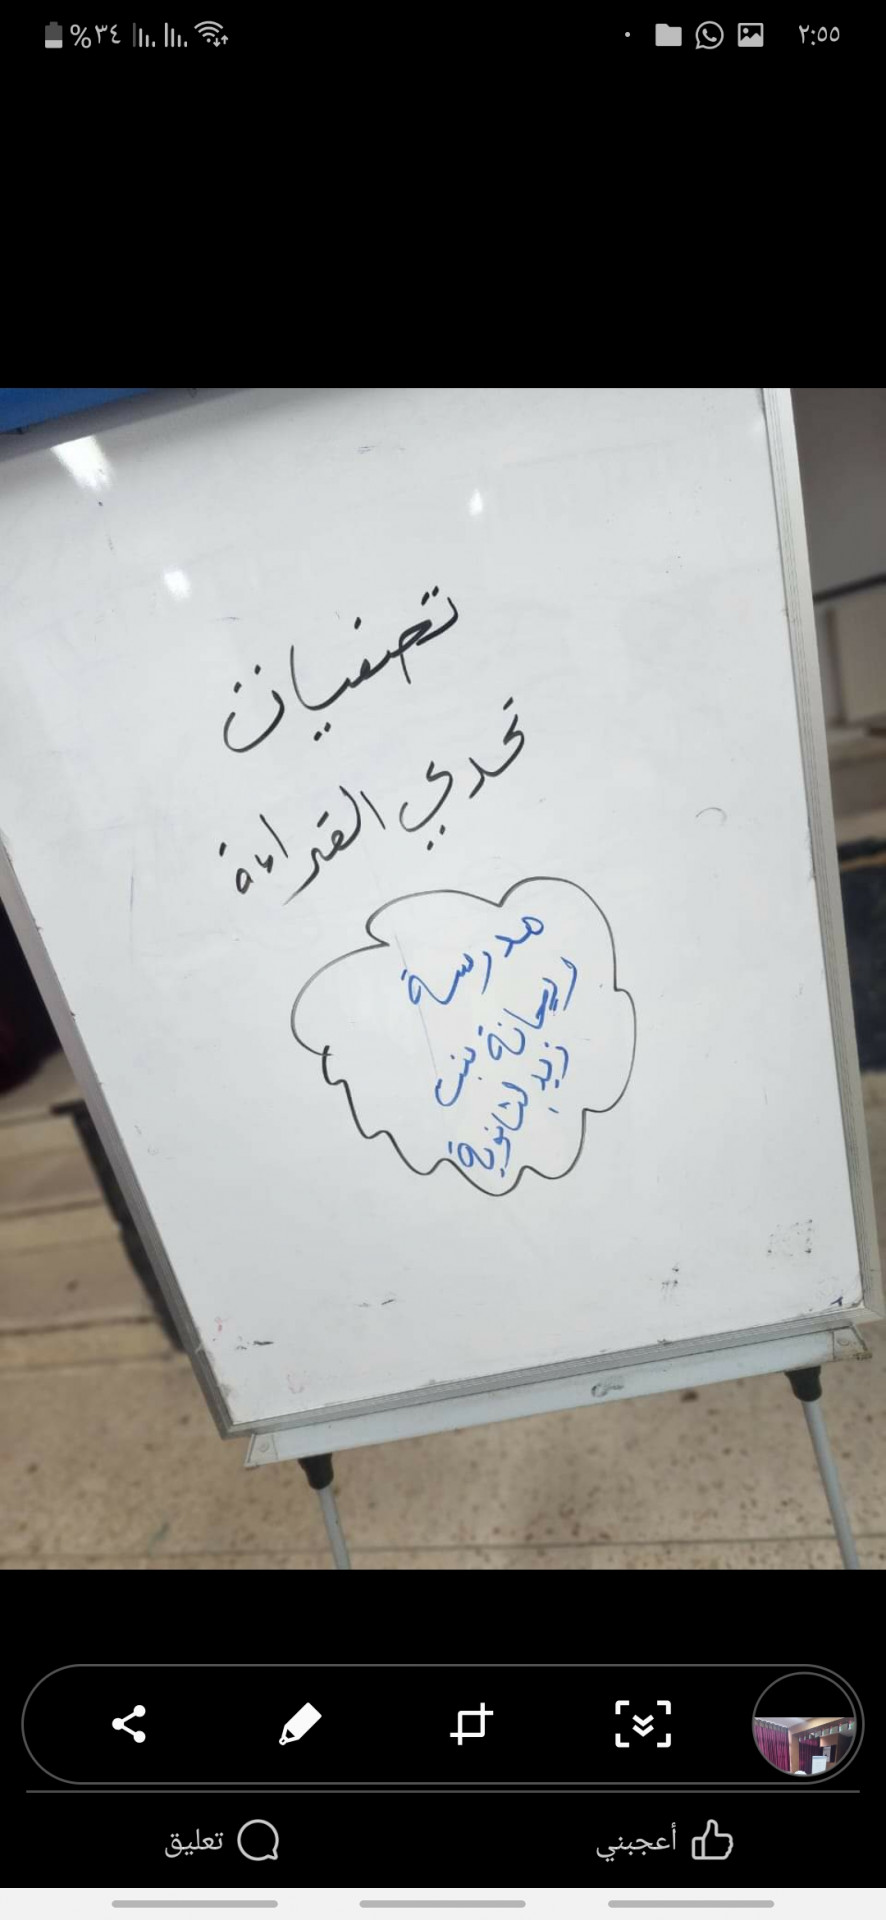 %٣٤
٢:٥٥
تصفيات
تحدي القراءة
مدرسة
ريحانة بنت
زيد الثانوية
أعجبني
تعليق